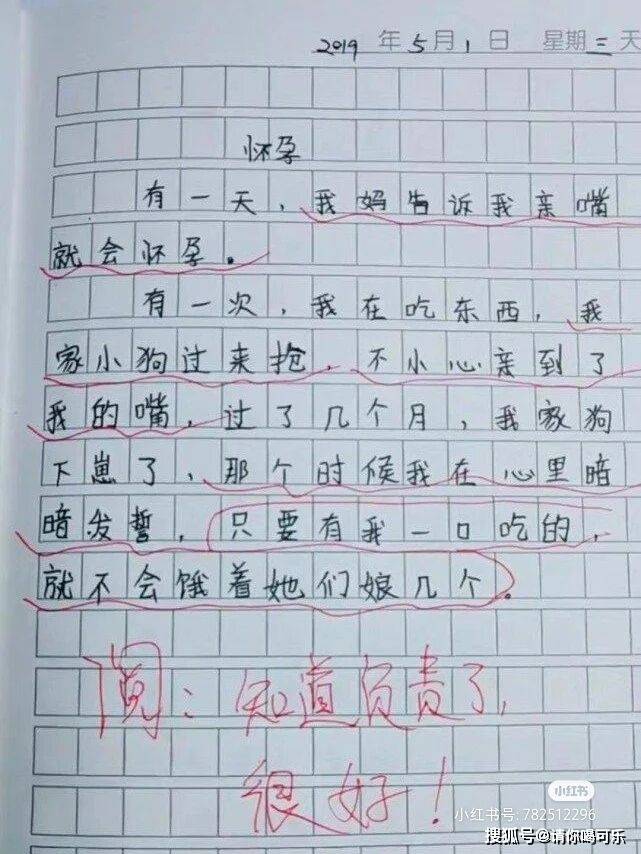 2019 年 5 月 1 日 星期三 天
怀孕
有一天，我妈告诉我亲嘴
就会怀孕。
有一次，我在吃东西，我
家小狗过来抢，不小心亲到了
我的嘴，过了几个月，我家狗
下崽了，那个时候我在心里暗
暗发誓，只要有我一口吃的，
就不会饿着她们娘几个。
阅：知道负责了，
很好！
小红书
小红书号: 782512296
搜狐号@请你喝可乐